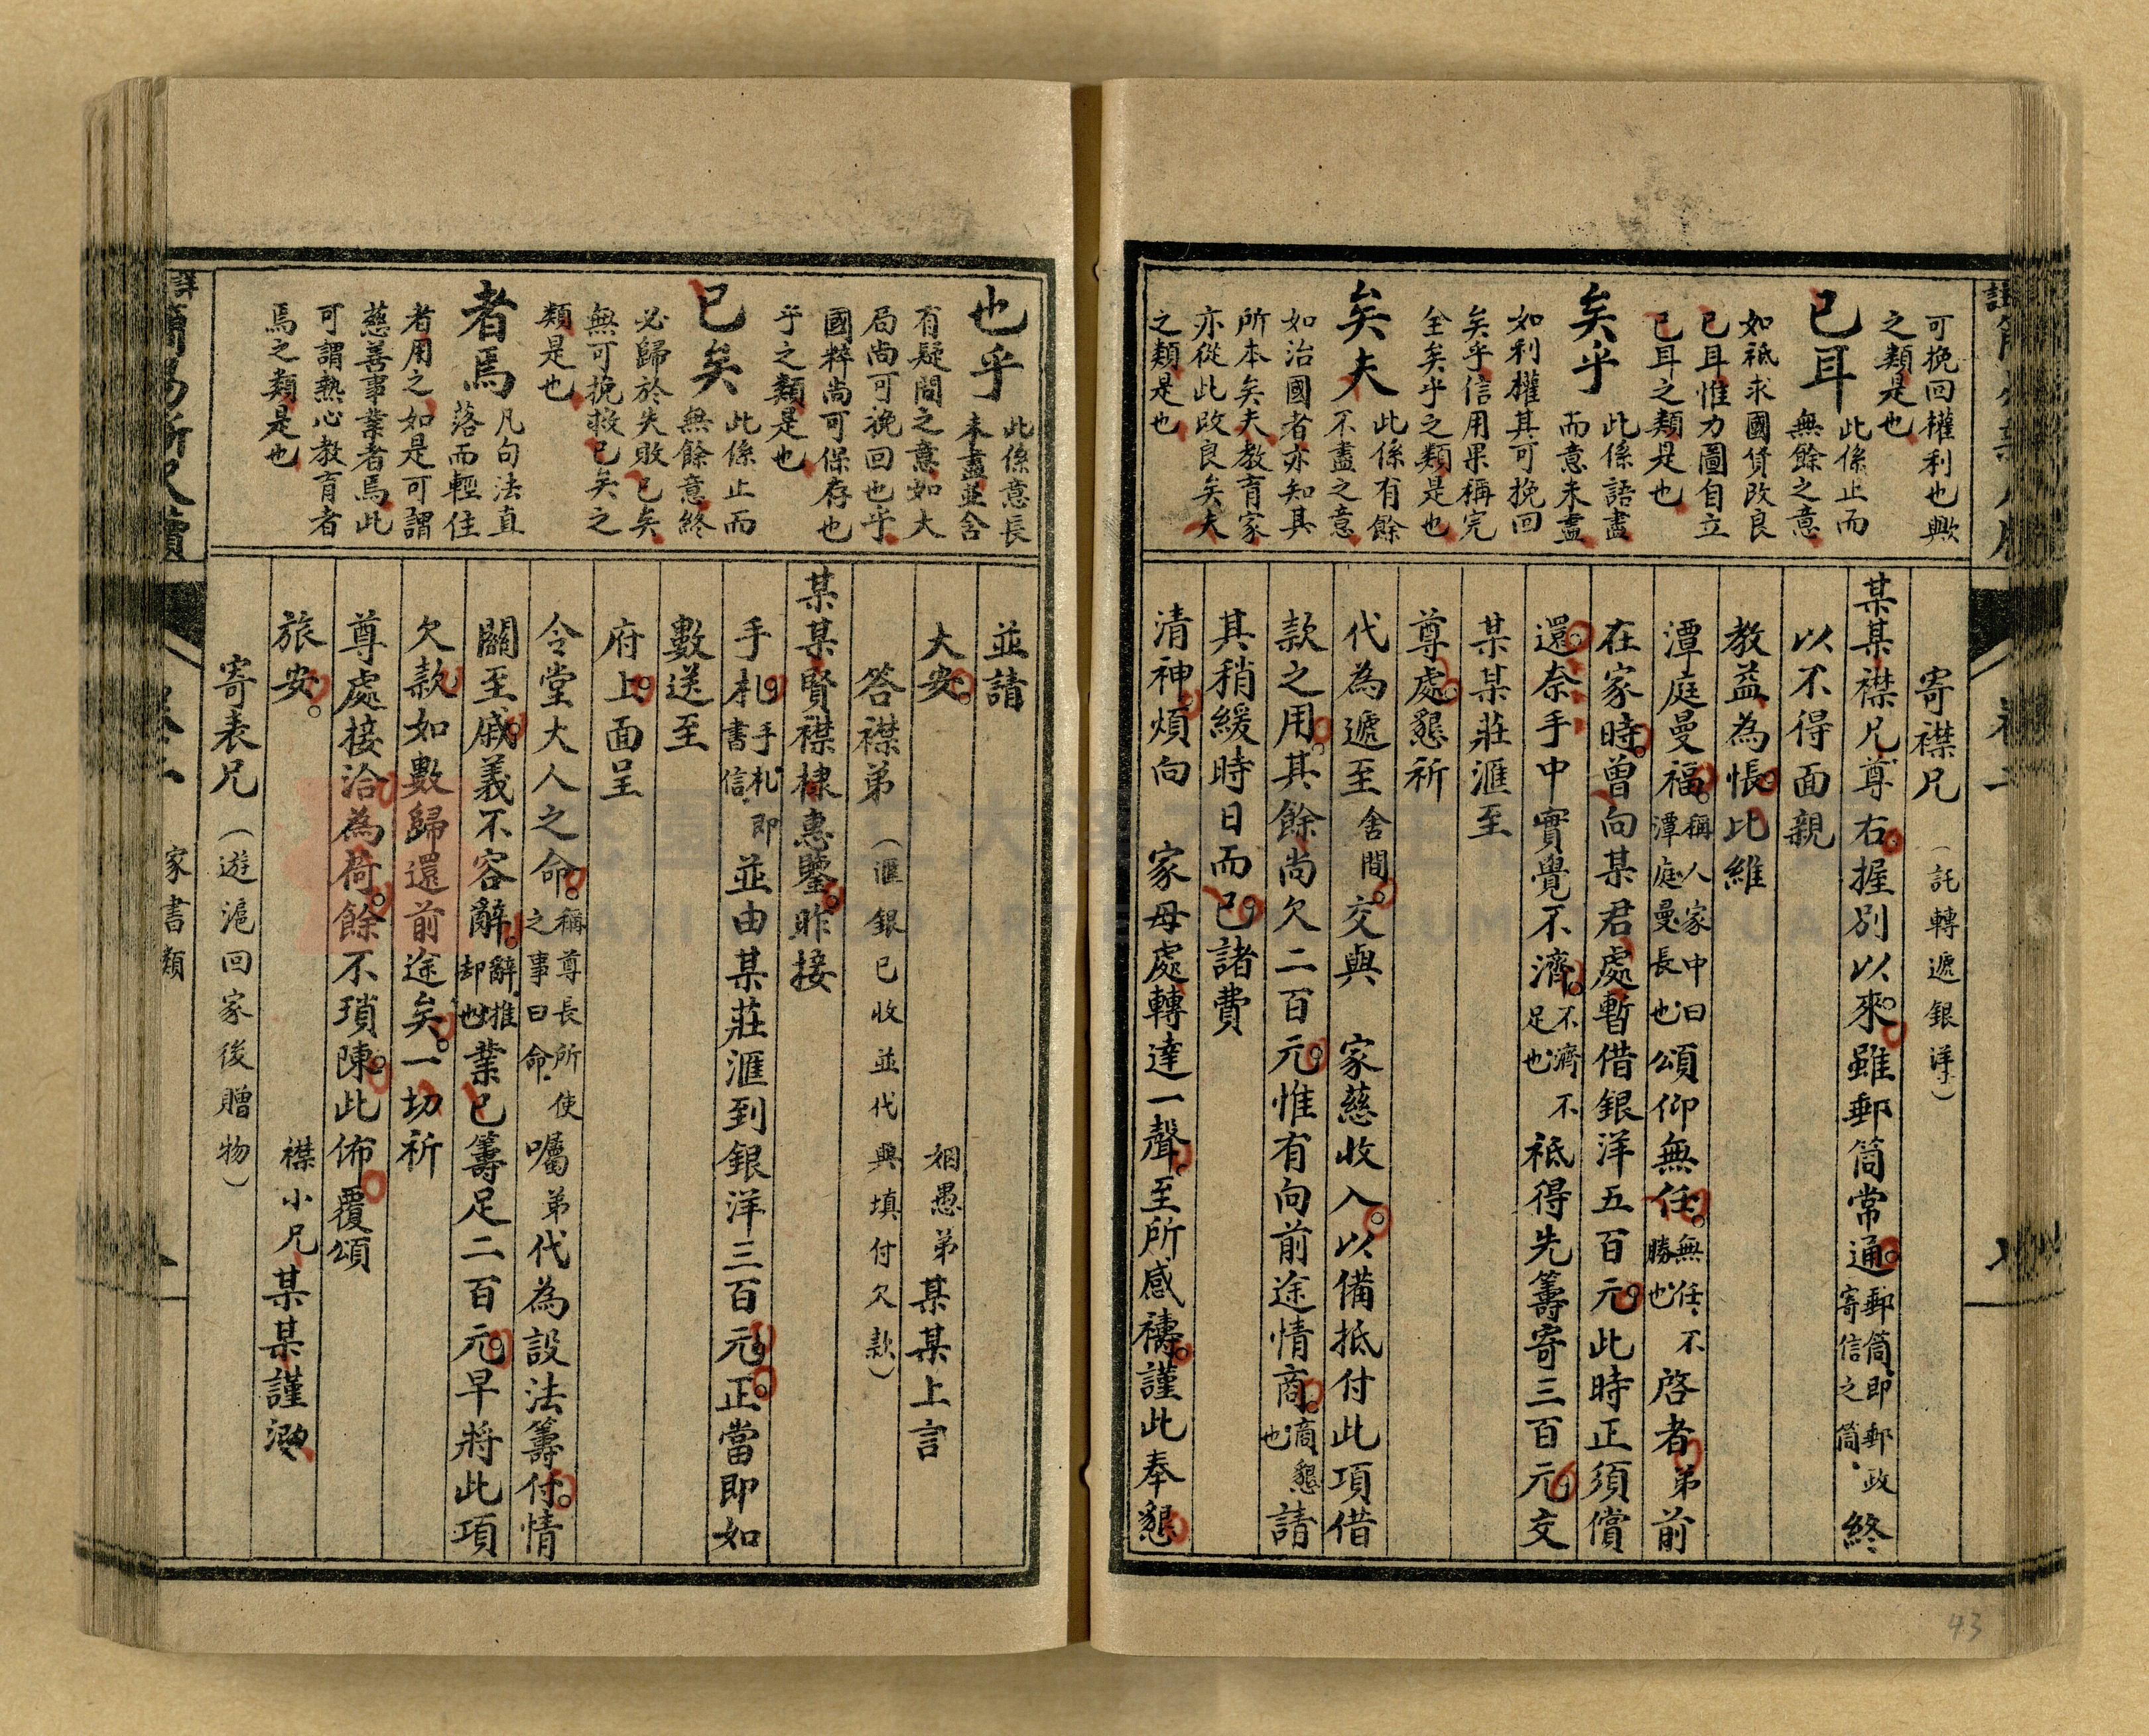 可挽回權利也歟
之類是也
已耳 此係止而
無餘之意
如祇求國貨改良
已耳惟力圖自立
已耳之類是也
矣乎 此係語盡
而意未盡
如利權其可挽回
矣乎信用果稱完
全矣乎之類是也
矣夫 此係有餘
不盡之意
如治國者亦知其
所本矣夫教育家
亦從此改良矣夫
之類是也
寄襟兄(託轉遞銀洋)
某某襟兄尊右握別以來雖郵筒常通郵筒即郵政寄信之筒終
以不得面親
教益為悵比維
潭庭曼福稱人家中曰潭庭曼長也頌仰無任無任不勝也啓者弟前
在家時曾向某君處暫借銀洋五百元此時正須償
還奈手中實覺不濟不濟不足也祗得先籌寄三百元交
某某莊滙至
尊處懇祈
代為遞至舍間交與 家慈收入以備抵付此項借
款之用其餘尚欠二百元惟有向前途情商商懇也請
其稍緩時日而已諸費
清神煩向 家母處轉達一聲至所感禱謹此奉懇
43
也乎 此係意長
未盡並含
有疑問之意如大
局尚可挽回也乎
國粹尚可保存也
乎之類是也
已矣 此係止而
無餘意終
必歸於失敗已矣
無可挽救已矣之
類是也
者焉 凡句法直
落而輕住
者用之如是可謂
慈善事業者焉此
可謂熱心教育者
焉之類是也
並請
大安 姻愚弟某某上言
答襟弟(滙銀已收並代興填付欠款)
某某賢襟棣惠鑒昨接
手札手札即書信並由某莊滙到銀洋三百元正當即如
數送至
府上面呈
令堂大人之命稱尊長所使之事曰命囑弟代為設法籌付情
關至戚義不容辭辭推却也業已籌足二百元早將此項
欠款如數歸還前途矣一切祈
尊處接洽為荷餘不瑣陳此佈覆頌
旅安 襟小兄某某謹泐
寄表兄(遊滬回家後贈物)
家書類